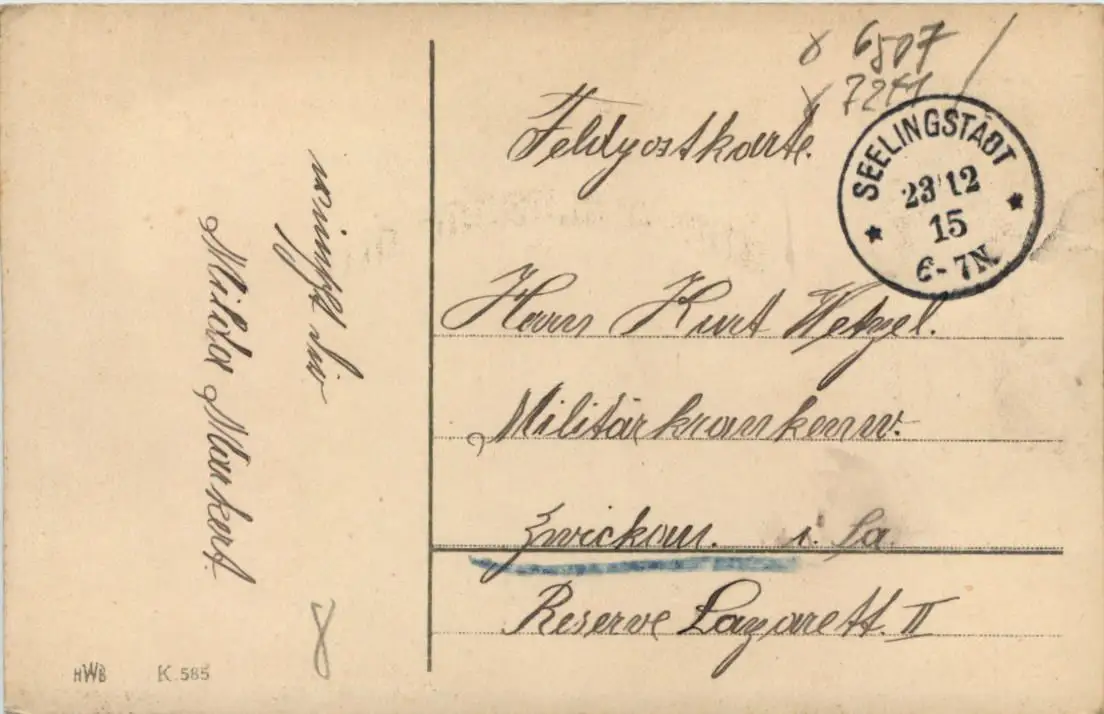 wünscht dir
Milda Markert.
HWB K.585
6507
7241
Feldpostkarte.
SEELINGSTADT
23 12
15
6-7N.
Herrn Kurt Wetzel.
Militärkrankenw.
Zwickau. i. Sa.
Reserve Lazarett. II